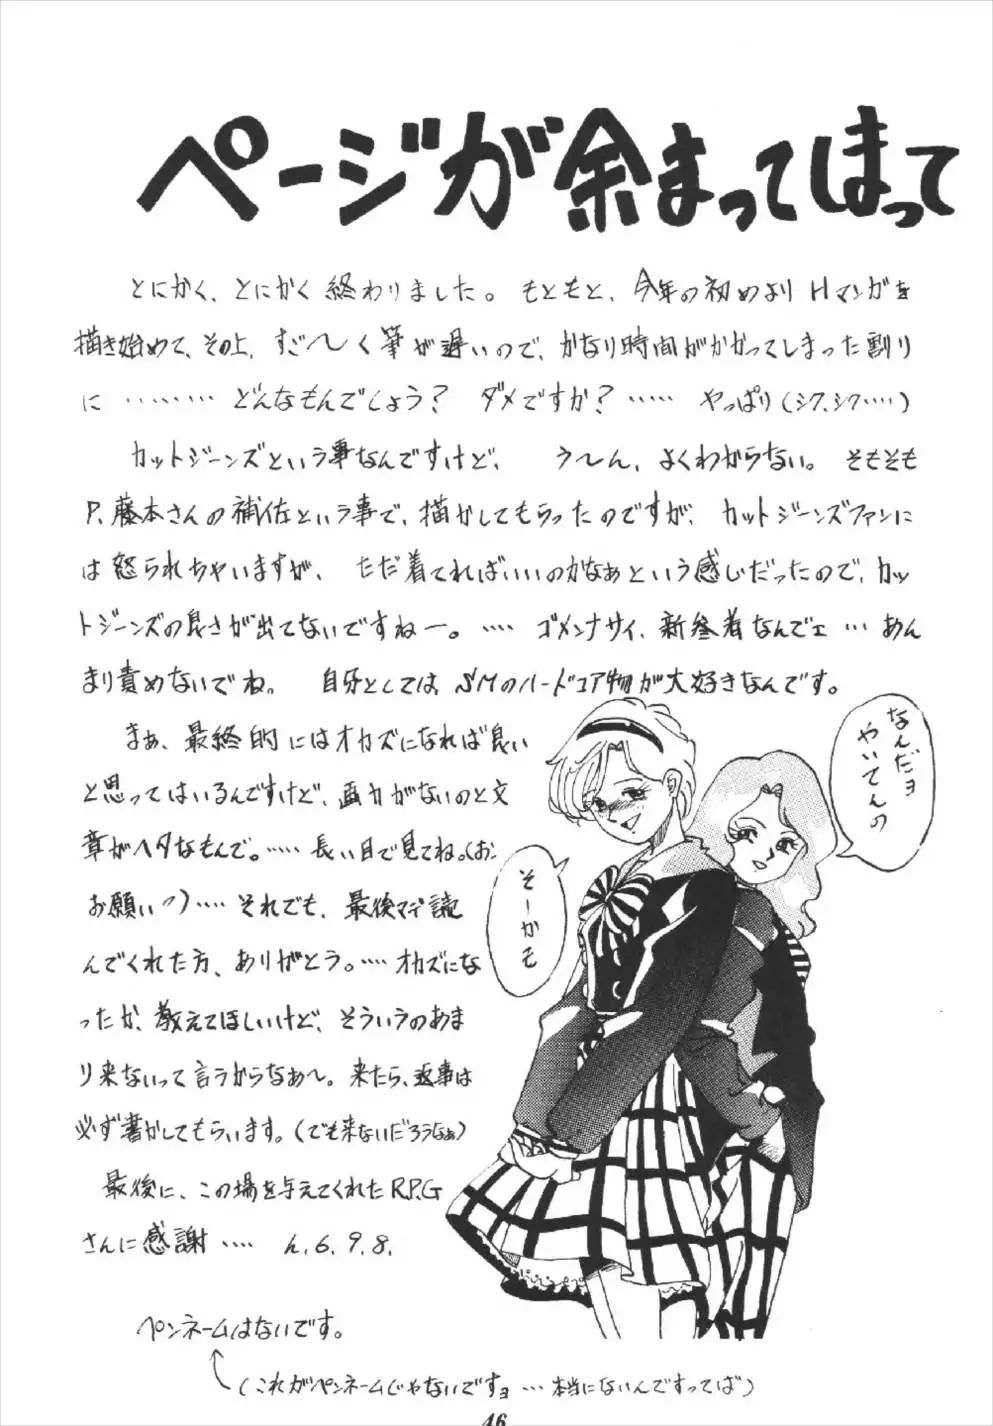 ページが余まってしまって
とにかく、とにかく終わりました。もともと、今年の初めよりHマンガを
描き始めて、その上、すご〜く筆が遅いので、かなり時間がかかってしまった割り
に ・・・・・・・・ どんなもんでしょう? ダメですか? ・・・・・ やっぱり(シク、シク・・・・)
カットジーンズという事なんですけど、 う〜ん、よくわからない。そもそも
P、藤本さんの補佐という事で、描かしてもらったのですが、カットジーンズファンに
は怒られちゃいますが、ただ着てればいいのかなぁという感じだったので、カッ
トジーンズの良さが出てないですねー。・・・・ ゴメンナサイ、新参者なんでェ ・・・ あん
まり責めないでね。 自分としては、SMのハードコア物が大好きなんです。
まぁ、最終的にはオカズになれば良い
と思ってはいるんですけど、画力がないのと文
章がヘタなもんで。・・・・・ 長い目で見てね。(お、
お願いっ)・・・・ それでも、最後マデ読
んでくれた方、ありがとう。・・・・ オカズにな
ったか、教えてほしいけど、そういうのあま
り来ないって言うからなあ〜。来たら、返事は
必ず書かしてもらいます。(でも来ないだろうなぁ)
最後に、この場を与えてくれたR.P.G
さんに感謝 ・・・・ h.6.9.8.
ペンネームはないです。
(これがペンネームじゃないですョ ・・・ 本当にないんですってば)
なんだョ
やいてんの
そーかも
46